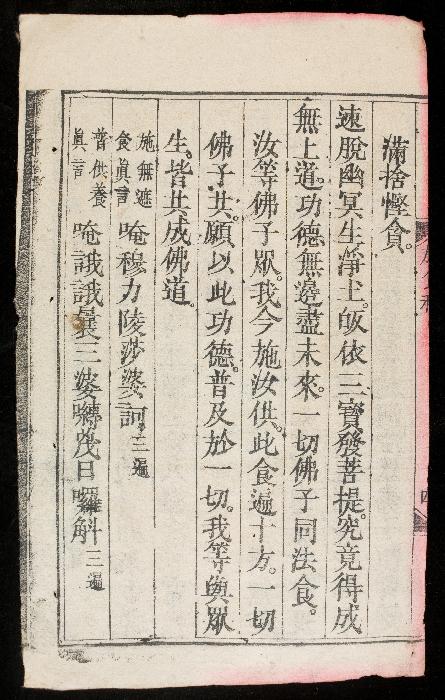 滿捨慳貪。
速脫幽冥生淨土。皈依三寶發菩提。究竟得成
無上道。功德無邊盡未來。一切佛子同法食。
汝等佛子眾。我今施汝供。此食遍十方。一切
佛子共。願以此功德。普及於一切。我等與眾
生。皆共成佛道。
施無遮食眞言 唵穆力陵莎婆訶。三遍
普供養眞言 唵誐誐曩三婆嚩茂日囉斛 三遍